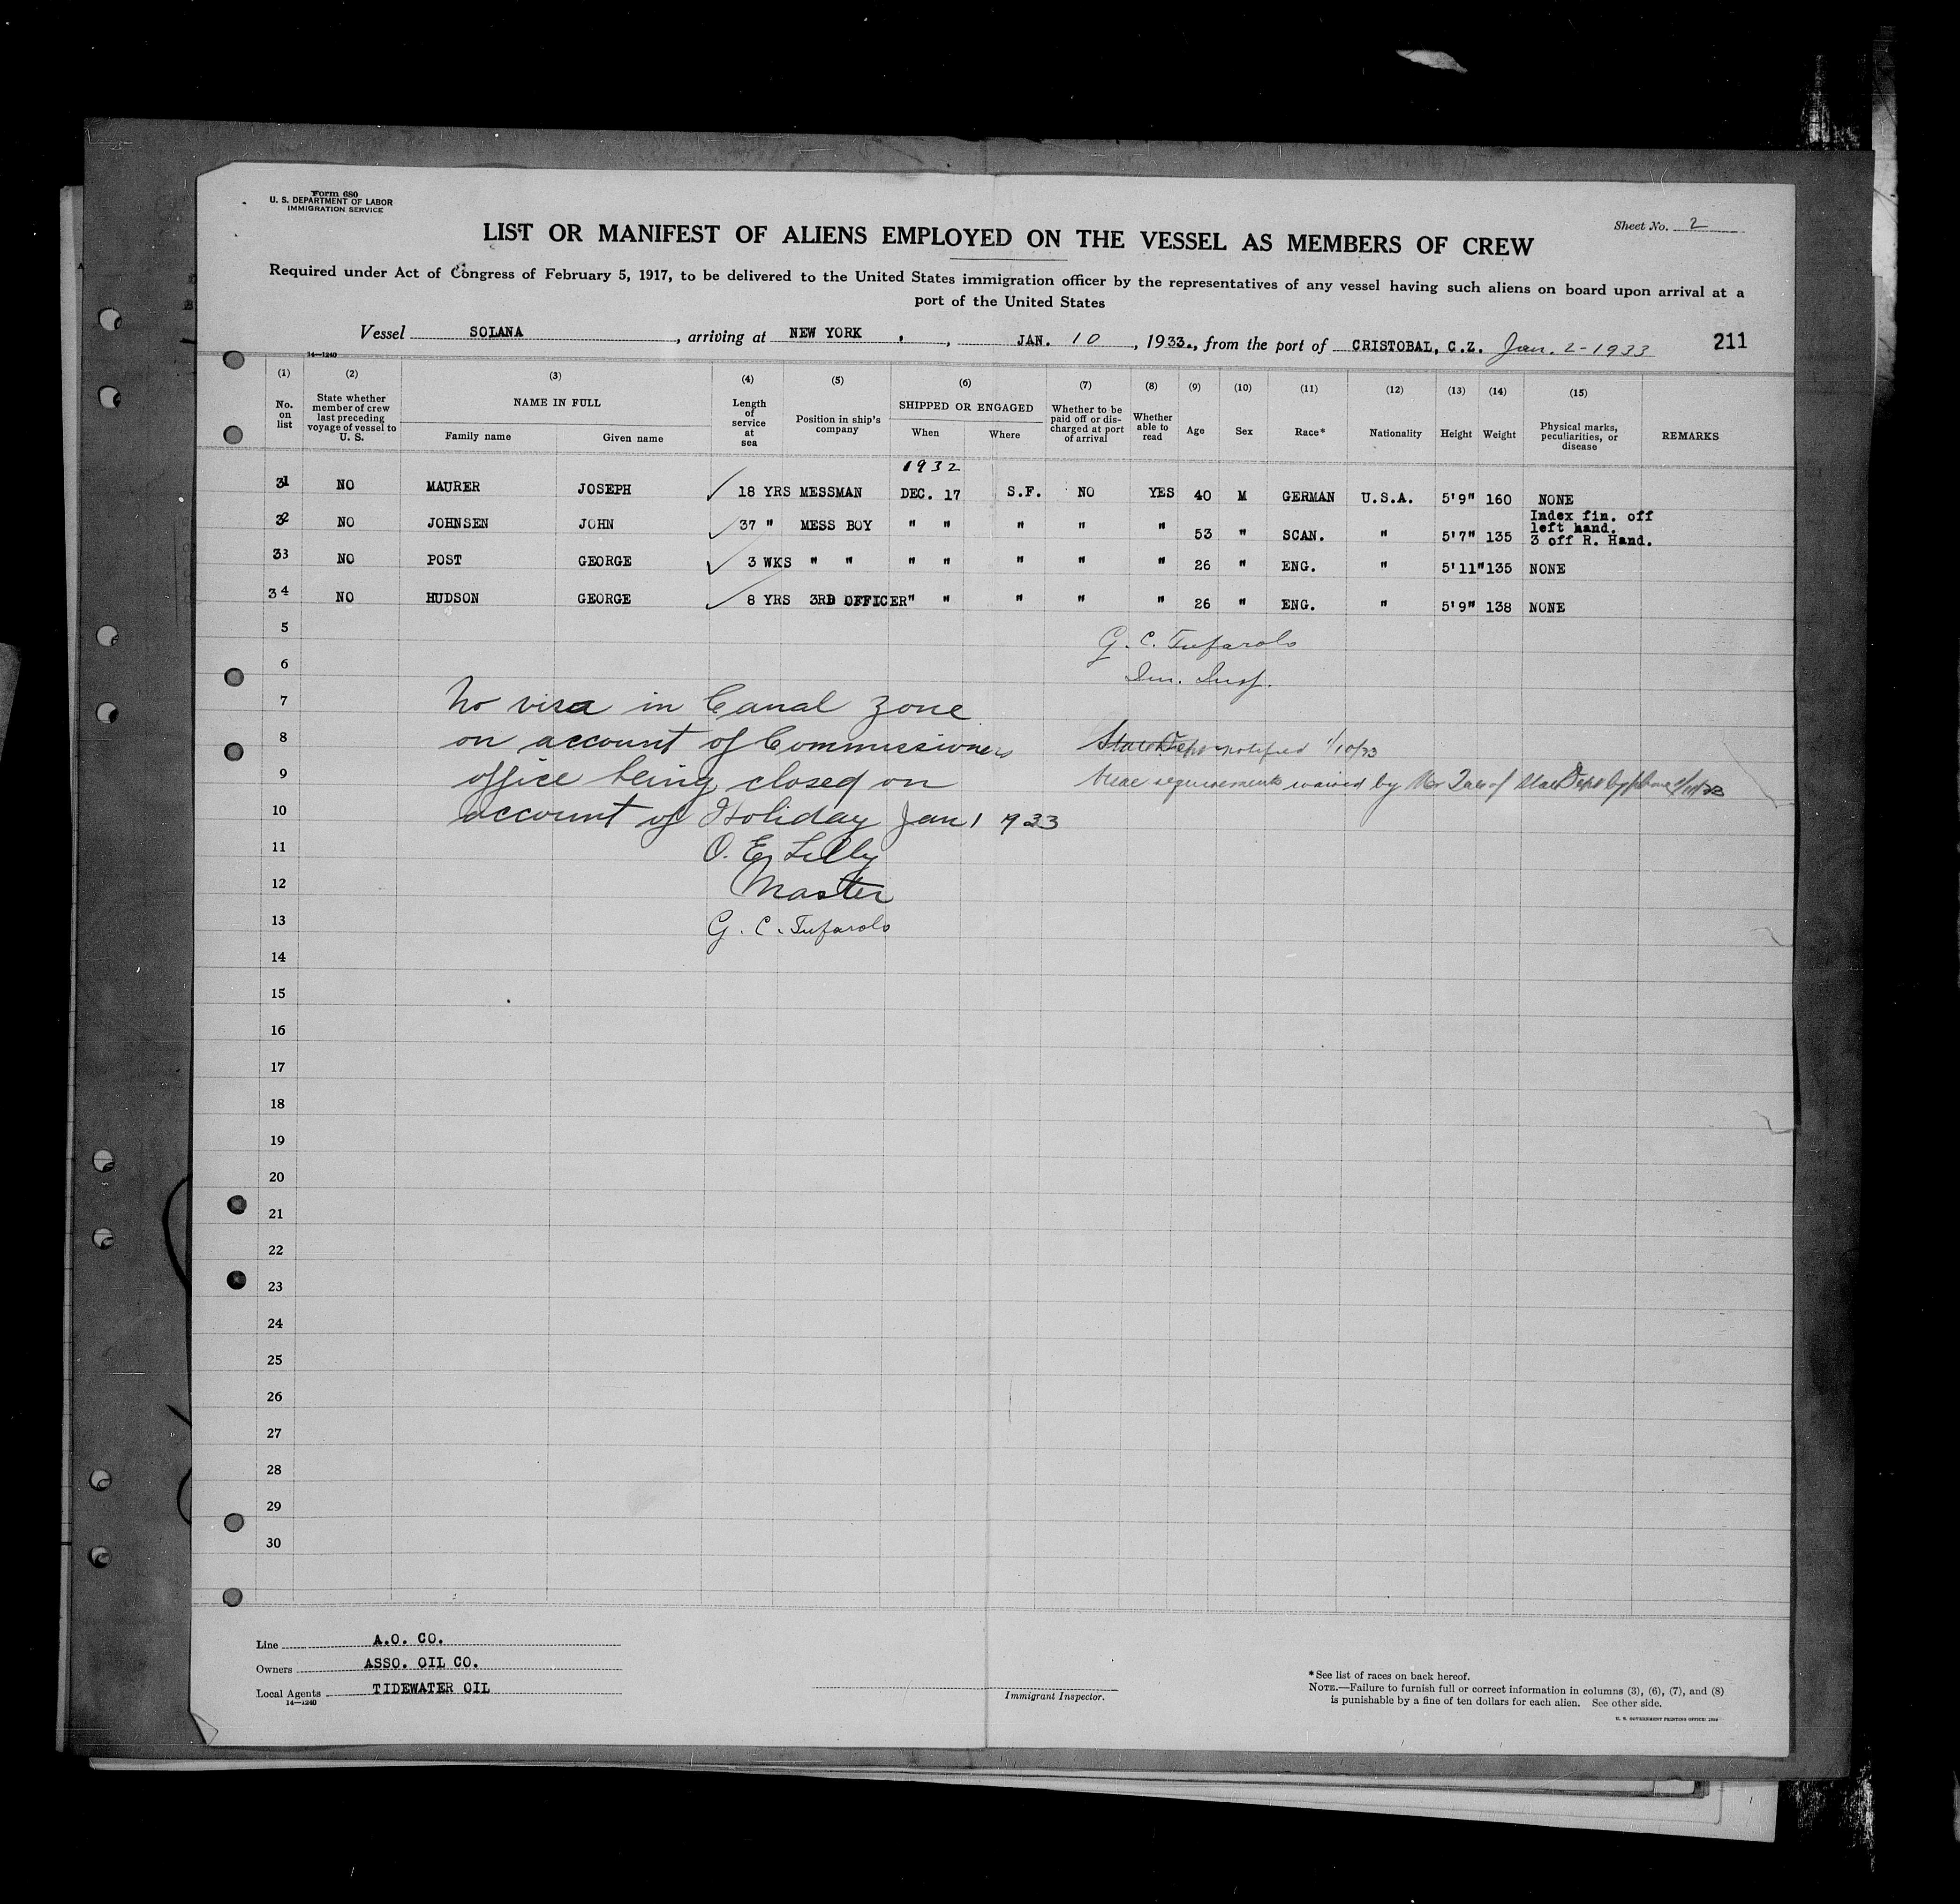 Form 680
U. S. DEPARTMENT OF LABOR
IMMIGRATION SERVICE
Sheet No. 2
LIST OR MANIFEST OF ALIENS EMPLOYED ON THE VESSEL AS MEMBERS OF CREW
Required under Act of Congress of February 5, 1917, to be delivered to the United States immigration officer by the representatives of any vessel having such aliens on board upon arrival at a
port of the United States
Vessel SOLANA, arriving at NEW YORK, JAN. 10, 1933., from the port of CRISTOBAL, C.Z. Jan. 2-1933 211
14—1240
(1) (2) (3) (4) (5) (6) (7) (8) (9) (10) (11) (12) (13) (14) (15)
No. on list
State whether member of crew last preceding voyage of vessel to U. S.
NAME IN FULL
Family name Given name
Length of service at sea
Position in ship's company
SHIPPED OR ENGAGED
When Where
Whether to be paid off or discharged at port of arrival
Whether able to read
Age Sex Race* Nationality Height Weight
Physical marks, peculiarities, or disease
REMARKS
1932
31 NO MAURER JOSEPH ✓ 18 YRS MESSMAN DEC. 17 S.F. NO YES 40 M GERMAN U.S.A. 5'9" 160 NONE
32 NO JOHNSEN JOHN ✓ 37 " MESS BOY " " " " " 53 " SCAN. " 5'7" 135 Index fin. off
left hand.
3 off R. Hand.
33 NO POST GEORGE ✓ 3 WKS " " " " " " " 26 " ENG. " 5'11" 135 NONE
34 NO HUDSON GEORGE ✓ 8 YRS 3RD OFFICER " " " " " 26 " ENG. " 5'9" 138 NONE
5
G. C. Tufarolo
6
Im. Insp.
7 No visa in Canal Zone
8 on account of Commissioners
State Dept notified 1/10/33
9 office being closed on
requirements waived by Mr of State Dept by phone 1/10/33
10 account of Holiday Jan 1 1933
11 O. E. Lilly
12 Master
13 G. C. Tufarolo
14
15
16
17
18
19
20
21
22
23
24
25
26
27
28
29
30
Line A.O. CO.
Owners ASSO. OIL CO.
Local Agents TIDEWATER OIL
14—1240
Immigrant Inspector.
*See list of races on back hereof.
NOTE.—Failure to furnish full or correct information in columns (3), (6), (7), and (8)
is punishable by a fine of ten dollars for each alien. See other side.
U. S. GOVERNMENT PRINTING OFFICE: